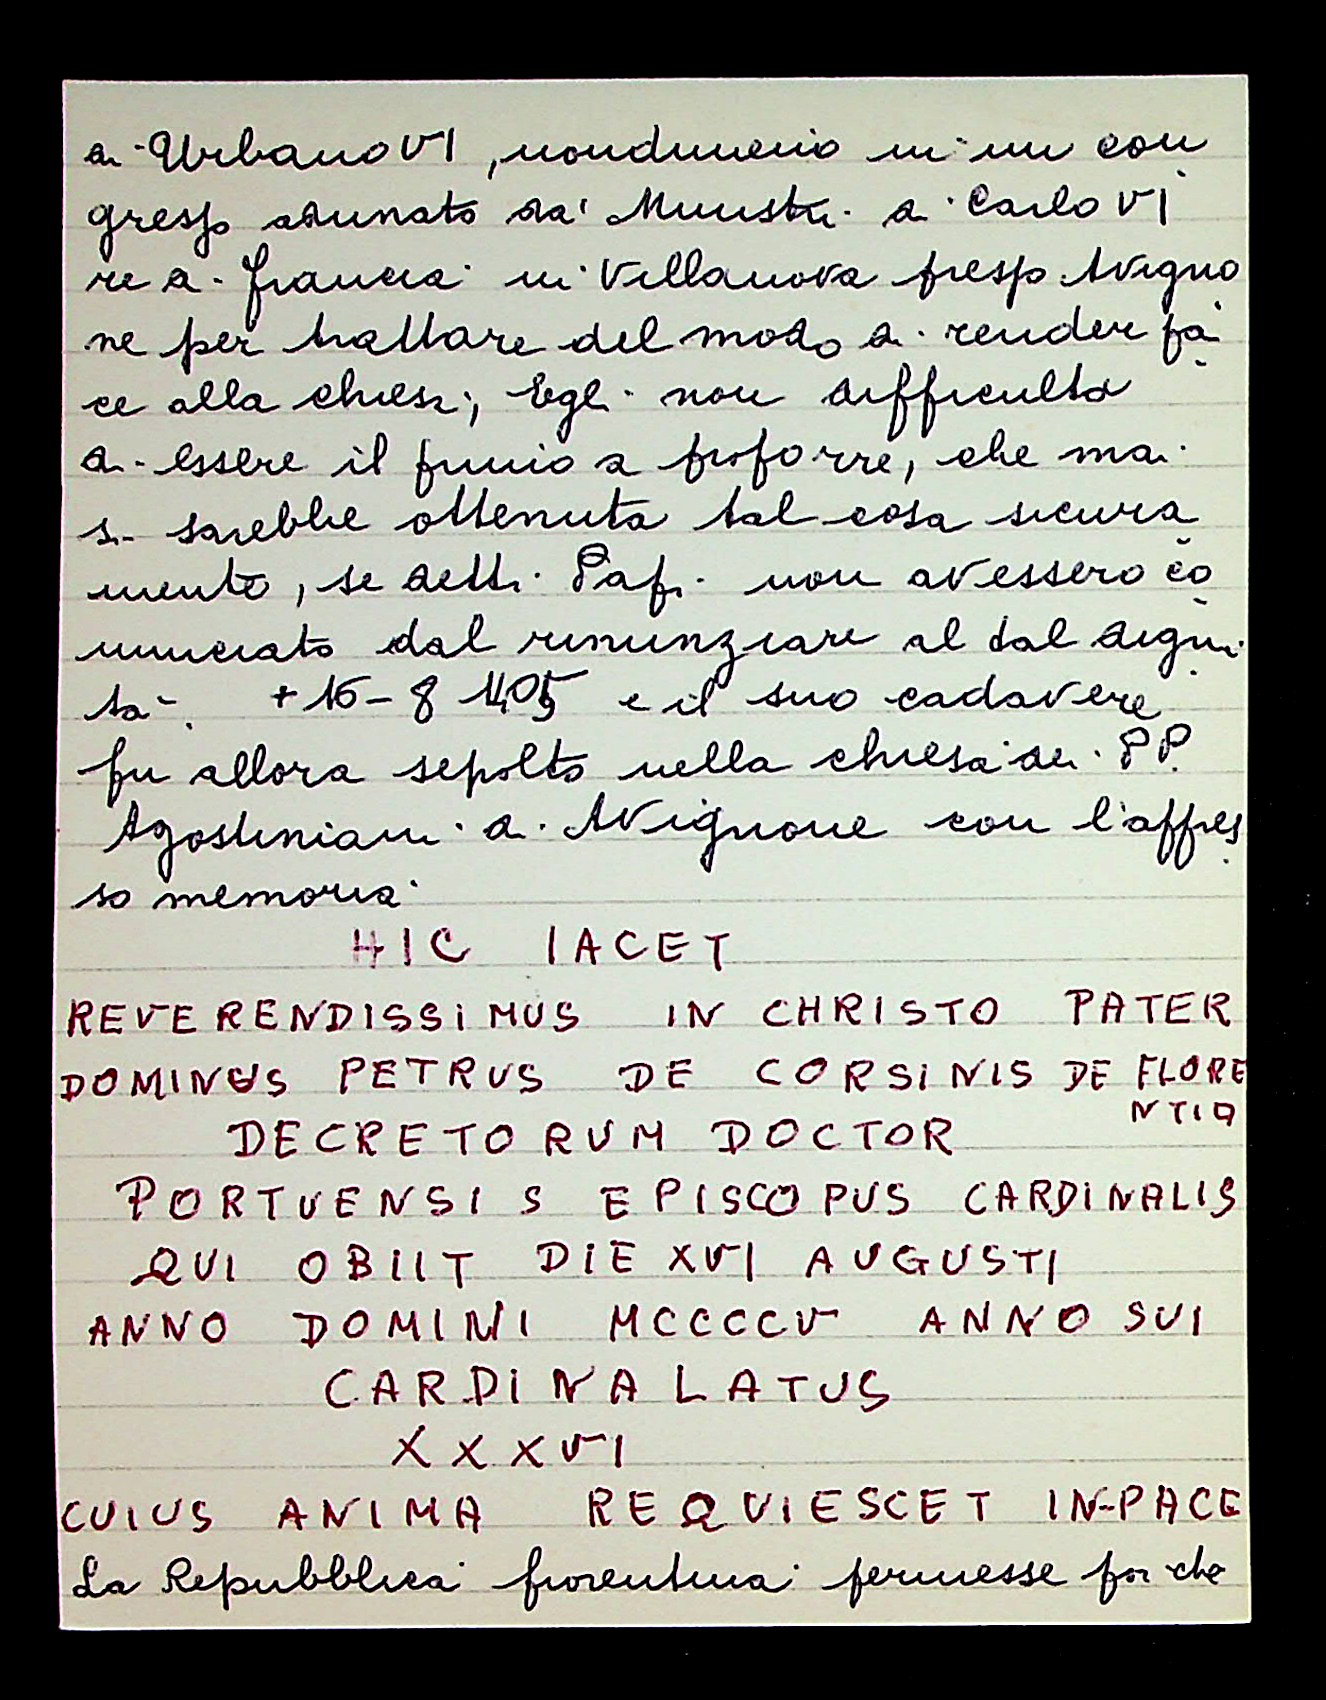 di Urbano VI, nondimeno in un con
gresso adunato da' Ministri di Carlo VI
re di Francia in Villanova presso Avigno
ne per trattare del modo di render pa
ce alla chiesa, Egli non difficultà
di essere il primo a proporre, che mai
si sarebbe ottenuta tal cosa sicura
mente, se detti Papi non avessero co
minciato dal rinunziare al tal digni
tà. +16-8 1405 e il suo cadavere
fu allora sepolto nella chiesa dei PP.
Agostiniani di Avignone con l'appres
so memoria
HIC IACET
REVERENDISSIMUS IN CHRISTO PATER
DOMINUS PETRUS DE CORSINIS DE FLORE
NTIA
DECRETORUM DOCTOR
PORTUENSIS EPISCOPUS CARDINALIS
QUI OBIIT DIE XVI AUGUSTI
ANNO DOMINI MCCCCV ANNO SUI
CARDINALATUS
XXXVI
CUIUS ANIMA REQUIESCET IN-PACE
La Repubblica fiorentina permesse poi che